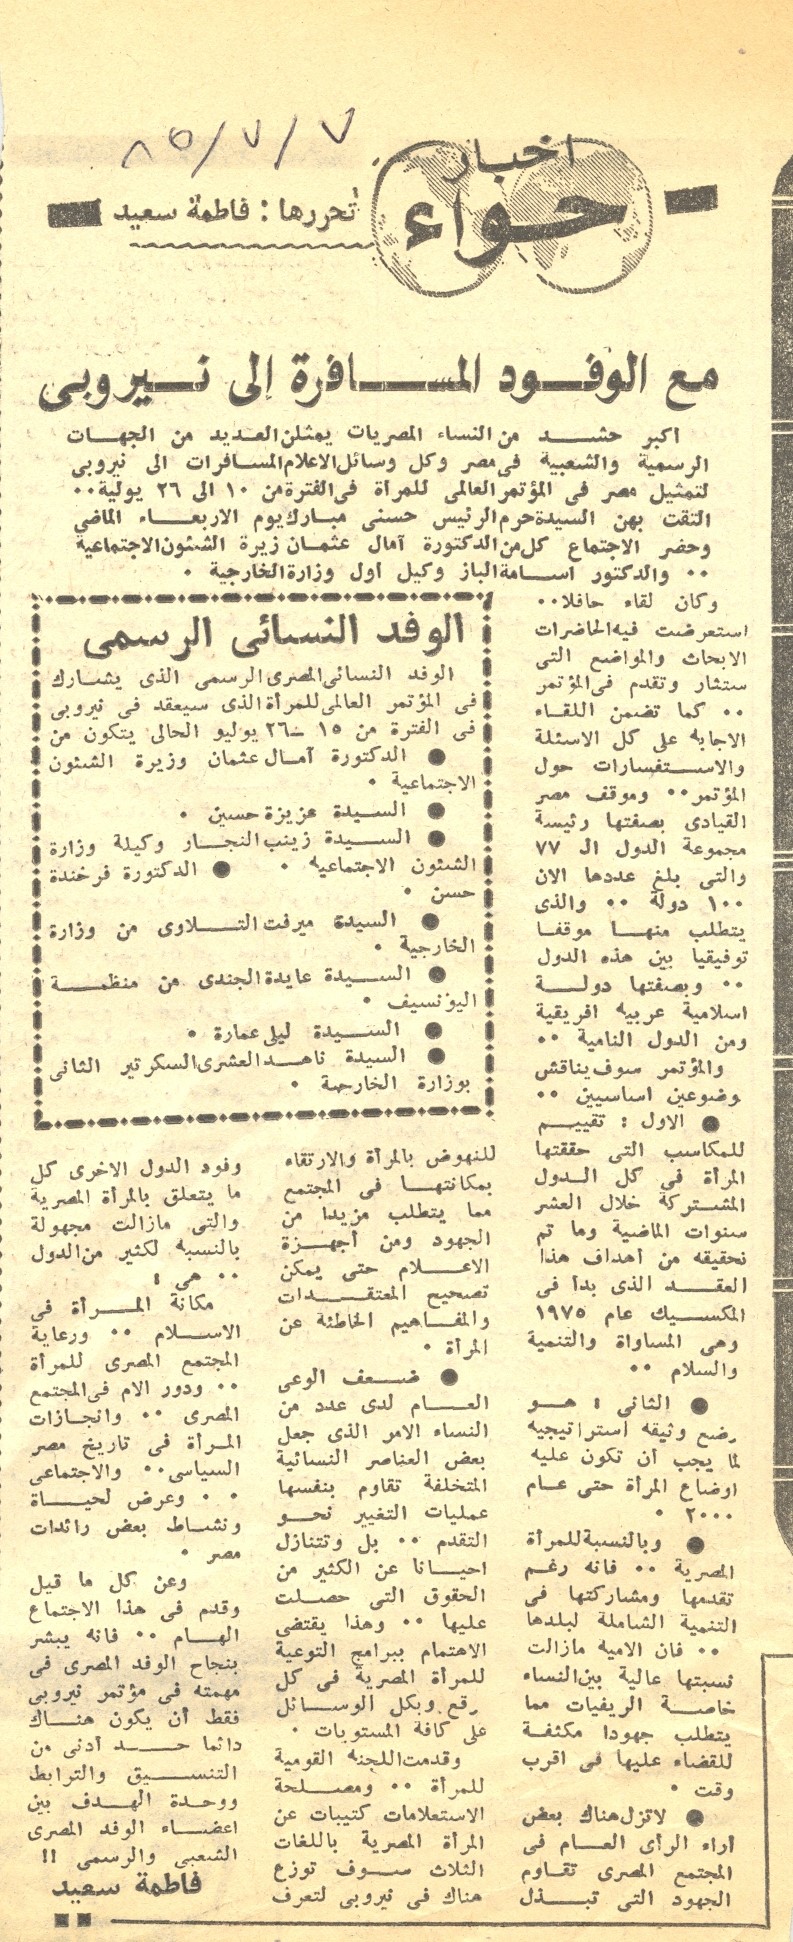 ٨٥/٧/٧
اخبار
حواء
تحررها : فاطمة سعيد
مع الوفود المسافرة إلى نيروبى
اكبر حشد من النساء المصريات يمثلن العديد من الجهات
الرسمية والشعبية فى مصر وكل وسائل الاعلام المسافرات الى نيروبى
لتمثيل مصر فى المؤتمر العالمى للمرأة فى الفترة من ١٠ الى ٢٦ يولية ..
التقت بهن السيدة حرم الرئيس حسنى مبارك يوم الاربعاء الماضى
وحضر الاجتماع كل من الدكتورة آمال عثمان زيرة الشئون الاجتماعية
.. والدكتور اسامة الباز وكيل اول وزارة الخارجية .
وكان لقاء حافلا ..
استعرضت فيه الحاضرات
الابحاث والمواضع التى
ستثار وتقدم فى المؤتمر
.. كما تضمن اللقاء
الاجابه على كل الاسئلة
والاستفسارات حول
المؤتمر .. وموقف مصر
القيادى بصفتها رئيسة
مجموعة الدول الـ ٧٧
والتى بلغ عددها الان
١٠٠ دولة .. والذى
يتطلب منها موقفا
توفيقيا بين هذه الدول
.. وبصفتها دولة
اسلامية عربيه افريقية
ومن الدول النامية ..
والمؤتمر سوف يناقش
وضوعين اساسيين ..
● الاول : تقييم
للمكاسب التى حققتها
المرأة فى كل الدول
المشتركة خلال العشر
سنوات الماضية وما تم
تحقيقه من اهداف هذا
العقد الذى بدأ فى
المكسيك عام ١٩٧٥
وهى المساواة والتنمية
والسلام ..
● الثانى : هو
رضع وثيقه استراتيجيه
لما يجب أن تكون عليه
اوضاع المرأة حتى عام
٢٠٠٠ .
● وبالنسبة للمرأة
المصرية .. فانه رغم
تقدمها ومشاركتها فى
التنمية الشاملة لبلدها
.. فان الاميه مازالت
نسبتها عالية بين النساء
خاصة الريفيات مما
يتطلب جهودا مكثفة
للقضاء عليها فى اقرب
وقت .
● لاتزل هناك بعض
آراء الرأى العام فى
المجتمع المصرى تقاوم
الجهود التى تبذل
الوفد النسائى الرسمى
الوفد النسائى المصرى الرسمى الذى يشارك
فى المؤتمر العالمى للمرأة الذى سيعقد فى نيروبى
فى الفترة من ١٥ ـ ٢٦ يوليو الحالى يتكون من
● الدكتورة آمال عثمان وزيرة الشئون
الاجتماعية .
● السيدة عزيزة حسين .
● السيدة زينب النجار وكيلة وزارة
الشئون الاجتماعيه . ● الدكتورة فرخندة
حسن .
● السيدة ميرفت التلاوى من وزارة
الخارجية .
● السيدة عايدة الجندى من منظمة
اليونسيف .
● السيدة ليلى عمارة .
● السيدة ناهد العشرى السكرتير الثانى
بوزارة الخارجية .
للنهوض بالمرأة والارتقاء
بمكانتها فى المجتمع
مما يتطلب مزيدا من
الجهود ومن أجهزة
الاعلام حتى يمكن
تصحيح المعتقدات
والمفاهيم الخاطئة عن
المرأة .
● ضعف الوعى
العام لدى عدد من
النساء الامر الذى جعل
بعض العناصر النسائية
المتخلفة تقاوم بنفسها
عمليات التغيير نحو
التقدم .. بل وتتنازل
احيانا عن الكثير من
الحقوق التى حصلت
عليها .. وهذا يقتضى
الاهتمام ببرامج التوعية
للمرأة المصرية فى كل
رقع وبكل الوسائل
على كافة المستويات .
وقدمت اللجنه القومية
للمرأة .. ومصلحة
الاستعلامات كتيبات عن
المرأة المصرية باللغات
الثلاث سوف توزع
هناك فى نيروبى لتعرف
وفود الدول الاخرى كل
ما يتعلق بالمرأة المصرية
والتى مازالت مجهولة
بالنسبه لكثير من الدول
.. هى :
مكانة المرأة فى
الاسلام .. ورعاية
المجتمع المصرى للمرأة
.. ودور الام فى المجتمع
المصرى .. وانجازات
المرأة فى تاريخ مصر
السياسى .. والاجتماعى
.. وعرض لحياة
ونشاط بعض رائدات
مصر .
وعن كل ما قيل
وقدم فى هذا الاجتماع
الهام .. فانه يبشر
بنجاح الوفد المصرى فى
مهمته فى مؤتمر نيروبى
فقط أن يكون هناك
دائما حد أدنى من
التنسيق والترابط
ووحدة الهدف بين
اعضاء الوفد المصرى
الشعبى والرسمى !!
فاطمة سعيد